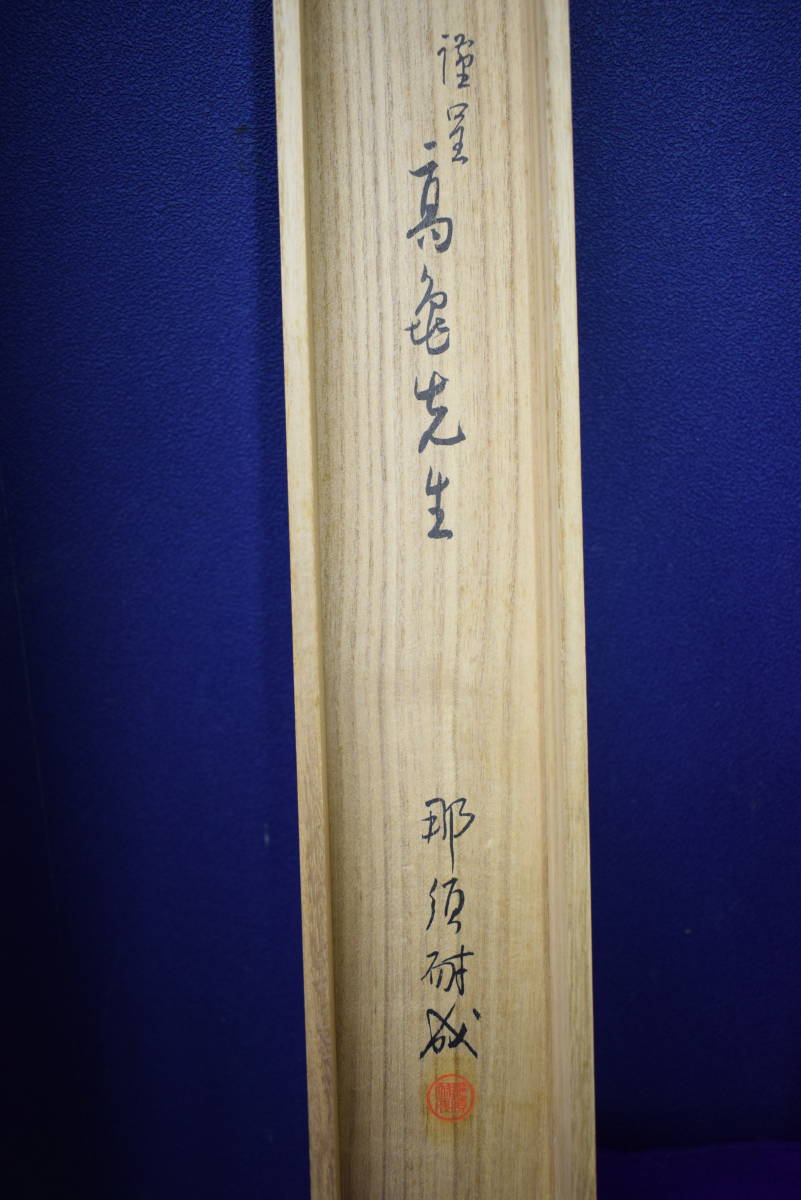 謹呈 高亀先生
那須耐成